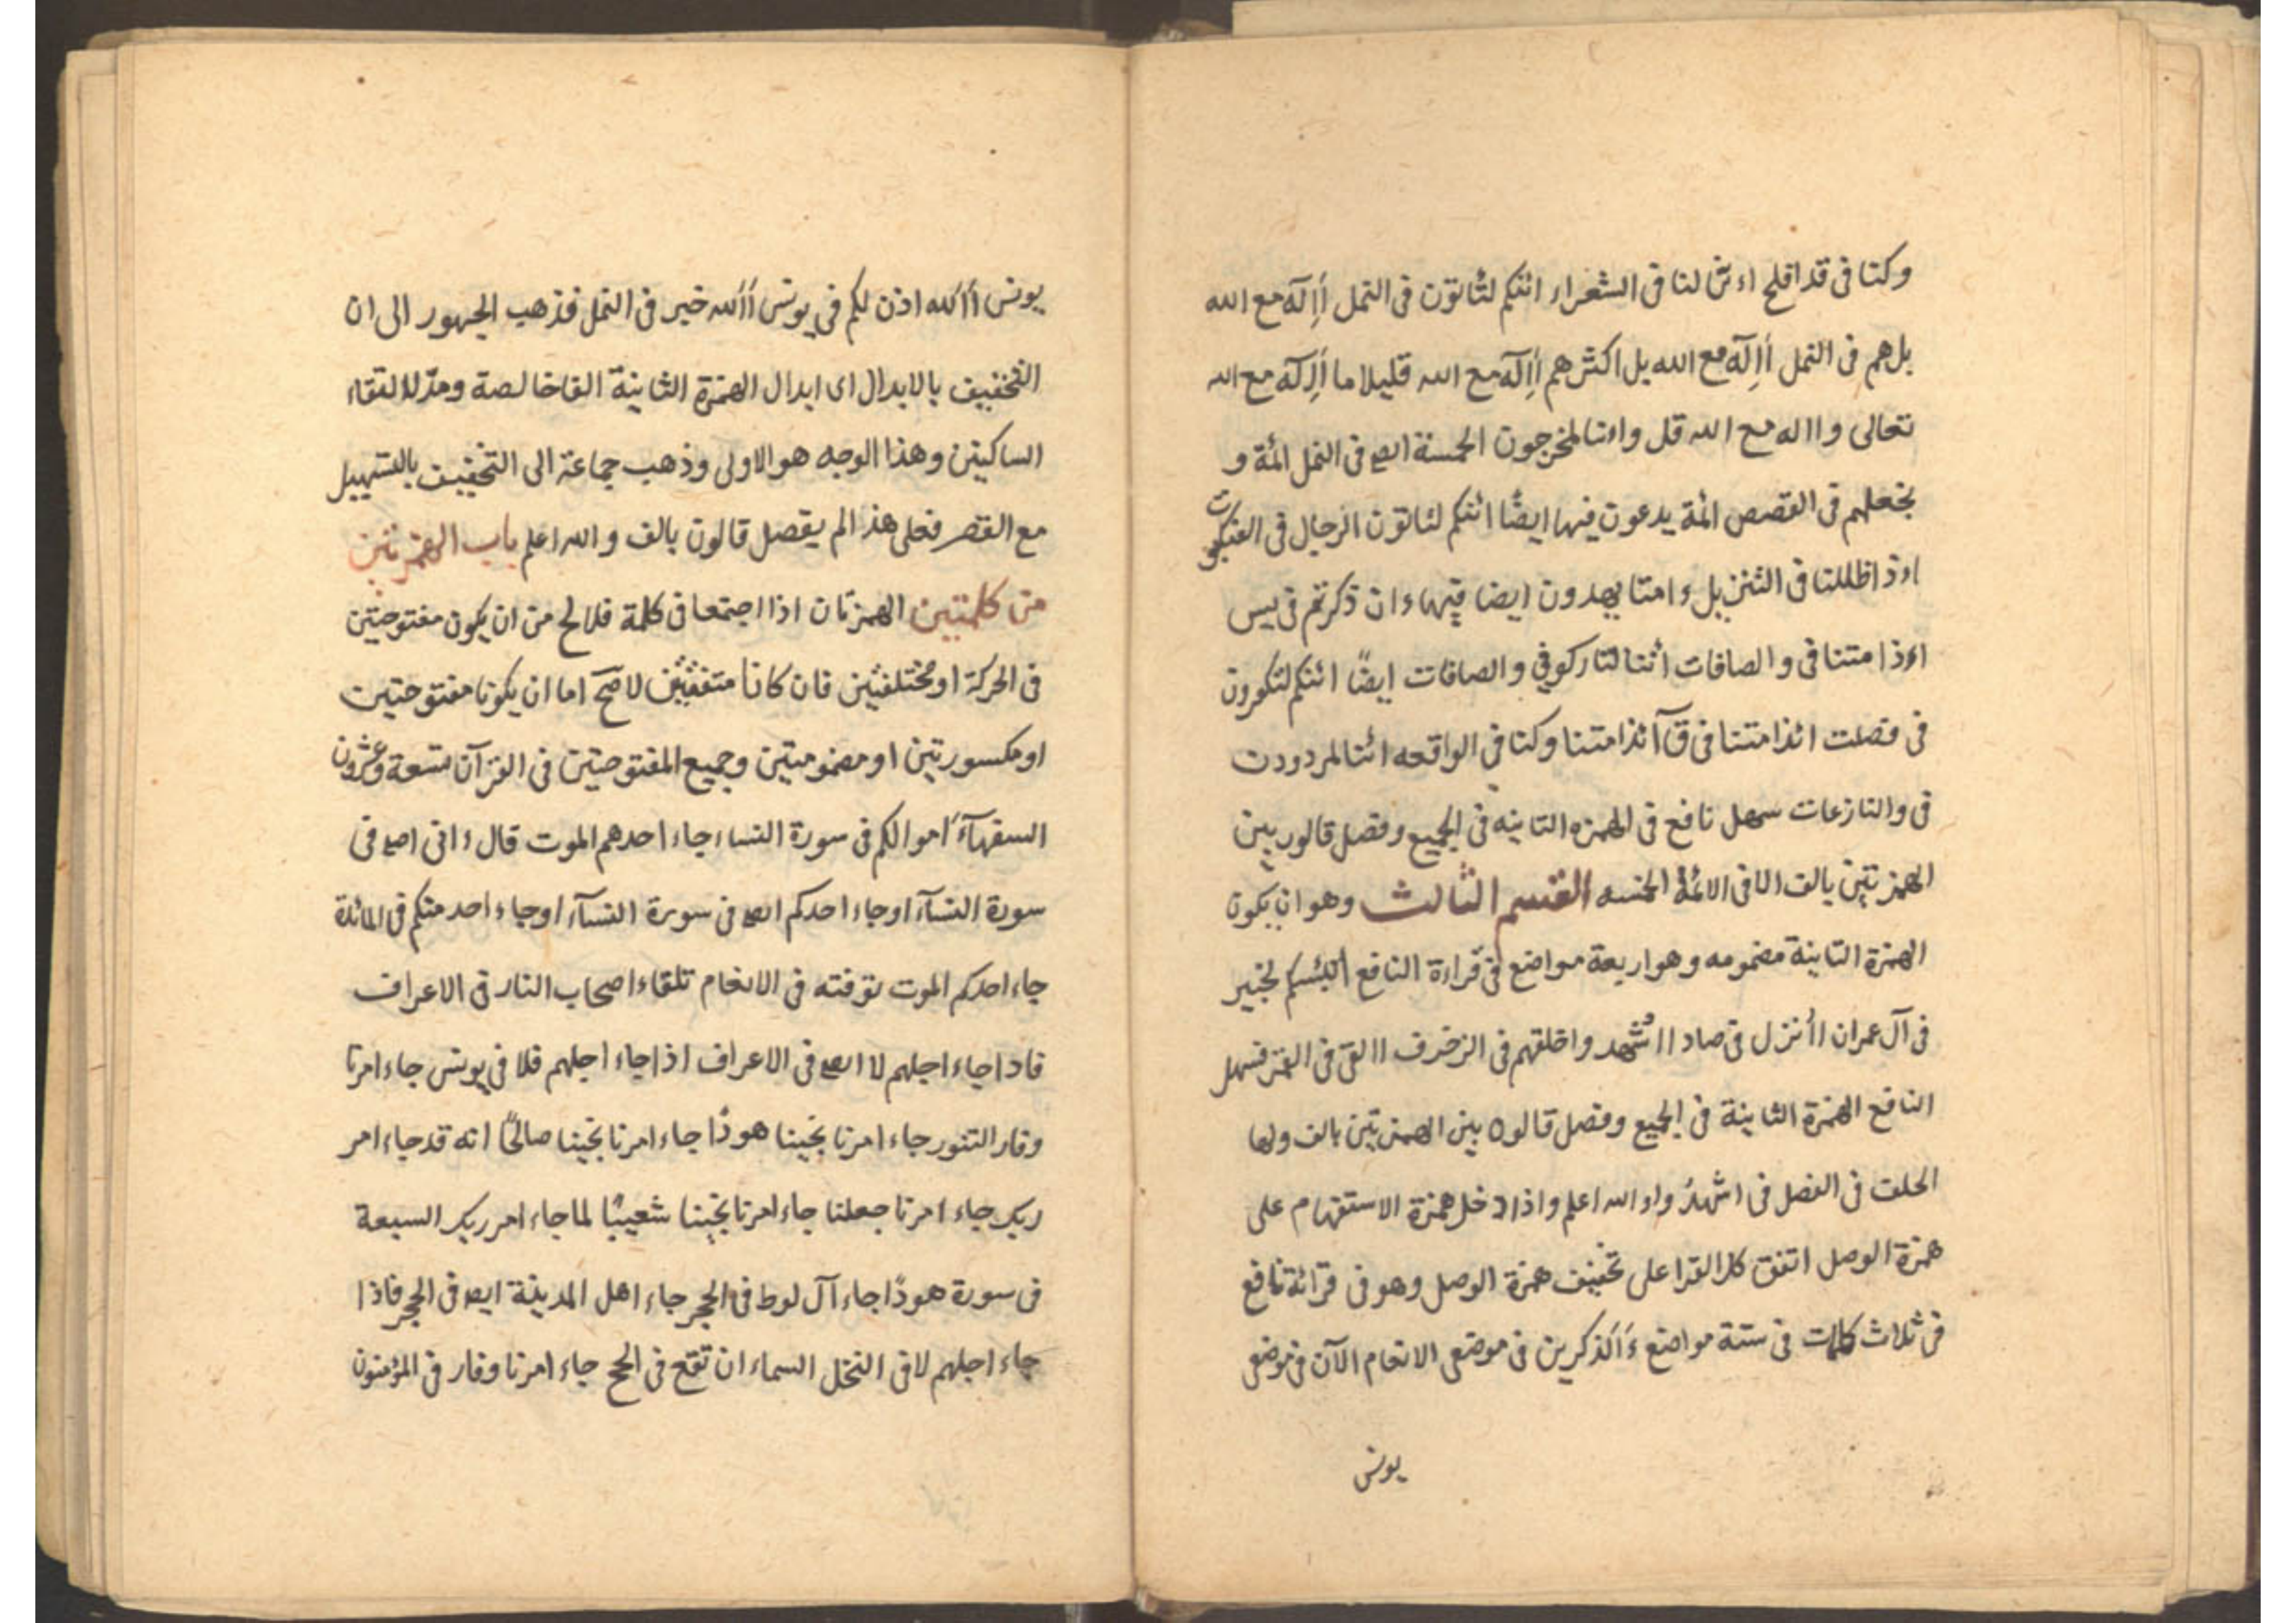 وكنا فى قد افلح اءئن لنا فى الشعراء ائنكم لتاتون فى النمل أإلٓه مع الله
بل هم فى النمل أإلٓه مع الله بل اكثرهم أإلٓه مع الله قليلا ما أإلٓه مع الله
تعالى واله مع الله قل واءنا لمخرجون الخمسة ايضا فى النمل ائمة و
نجعلهم فى القصص ائمة يدعون فيها ايضًا ائنكم لتاتون الرجال فى العنكبوت
اءذا ظللنا فى التنزيل ءامتا يهدون ايضا فيها ءان ذكرتم فى يس
اءذا متنا فى والصافات ائنا لتاركو فى والصافات ايضًا ائنكم لتكفرون
فى فصلت ائذا متنا فى قٓ ائذا متنا وكنا فى الواقعه ائنا لمردودت
فى والنازعات سهل نافع فى الهمزه الثانيه فى الجميع وفصل قالون بين
الهمزتين بالف الا فى الائمة الخمسه القسم الثالث وهو ان يكون
الهمزة الثانية مضمومه وهو اربعة مواضع فى قراءة النافع أؤنبئكم بخير
فى آل عمران اأنزل فى صاد ااُشهد واخلقهم فى الزخرف االقى فى القمر فسهل
النافع الهمزة الثانية فى الجميع وفصل قالون بين الهمزتين بالف ولها
الخلف فى الفصل فى اشهدُ واو الله اعلم واذا دخل همزة الاستفهام على
همزة الوصل اتفق كل القرا على تخفيف همزة الوصل وهو فى قرائة نافع
فى ثلاث كلمات فى ستة مواضع ءَآلذكرين فى موضعى الانعام الآن فى موضعى
يونس
يونس أآلله اذن لكم فى يونس أآلله خير فى النمل فذهب الجمهور الى ان
التخفيف بالابدال اى ابدال الهمزة الثانية الفا خالصة ومدّ لالتقاء
الساكنين وهذا الوجه هو الاولى وذهب جماعة الى التخفيف بالتسهيل
مع القصر فعلى هذا لم يفصل قالون بالف والله اعلم باب الهمزتين
من كلمتين الهمزتان اذا اجتمعا فى كلمة فلا يخ من ان يكون مفتوحتين
فى الحركة او مختلفتين فان كانا متفقتين لا صحّ اما ان يكونا مفتوحتين
او مكسورتين او مضمومتين وجميع المفتوحتين فى القرآن تسعة وعشرون
السفهآءَ اموالكم فى سورة النساء جاء احدهم الموت قال ءانى ايضا فى
سورة النسآء اوجاء احدكم ايضا فى سورة النسآء اوجاء احد منكم فى المائدة
جاء احدكم الموت توفته فى الانعام تلقاء اصحاب النار فى الاعراف
فاذا جاء اجلهم لا ايضا فى الاعراف اذا جاء اجلهم فلا فى يونس جاء امرنا
وفار التنور جاء امرنا نجينا هودًا جاء امرنا نجينا صالحًا انه قد جاء امر
ربك جاء امرنا جعلنا جاء امرنا نجينا شعيبًا لما جاء امر ربك السبعة
فى سورة هودًا جاء آل لوط فى الحجر جاء اهل المدينة ايضا فى الحجر فاذا
جاء اجلهم لا فى النحل السماء ان تقع فى الحج جاء امرنا وفار فى المؤمنون